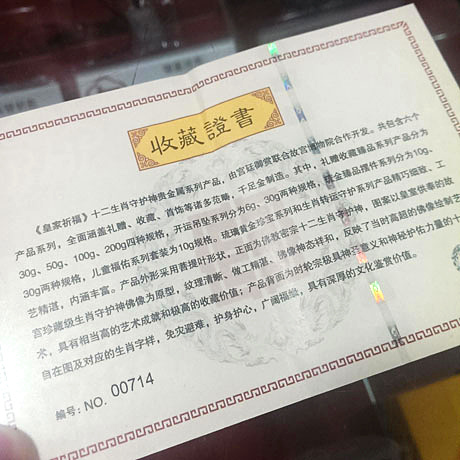 收藏證書
《皇家祈福》十二生肖守护神贵金属系列产品，由宫廷御赏联合故宫博物院合作开发。共包含六个
产品系列，全面涵盖礼赠、收藏、首饰等诸多范畴，千足金制造。其中，礼赠收藏臻品系列产品分为
30g、50g、100g、200g四种规格，开运吊坠系列分为6g、30g两种规格，贺金臻品摆件系列分为10g、
30g两种规格，儿童福佑系列套装为10g规格。琉璃黄金珍宝系列和生肖转运守护系列产品精巧细致、工
艺精湛，内涵丰富。产品外形采用菩提叶形状，正面为密教密宗十二生肖守护神，图案以皇室供奉的故
宫珍藏级生肖守护神佛像为原型，纹理清晰、做工精湛、佛像神态祥和，反映了当时高超的佛像绘制艺
术，具有相当高的艺术成就和极高的收藏价值；产品背面为时轮宗极具神圣意义和神秘护佑力量的十
自在图及对应的生肖字样，免灾避难，护身护心，广阔福缘，具有深厚的文化鉴赏价值。
编号：NO. 00714